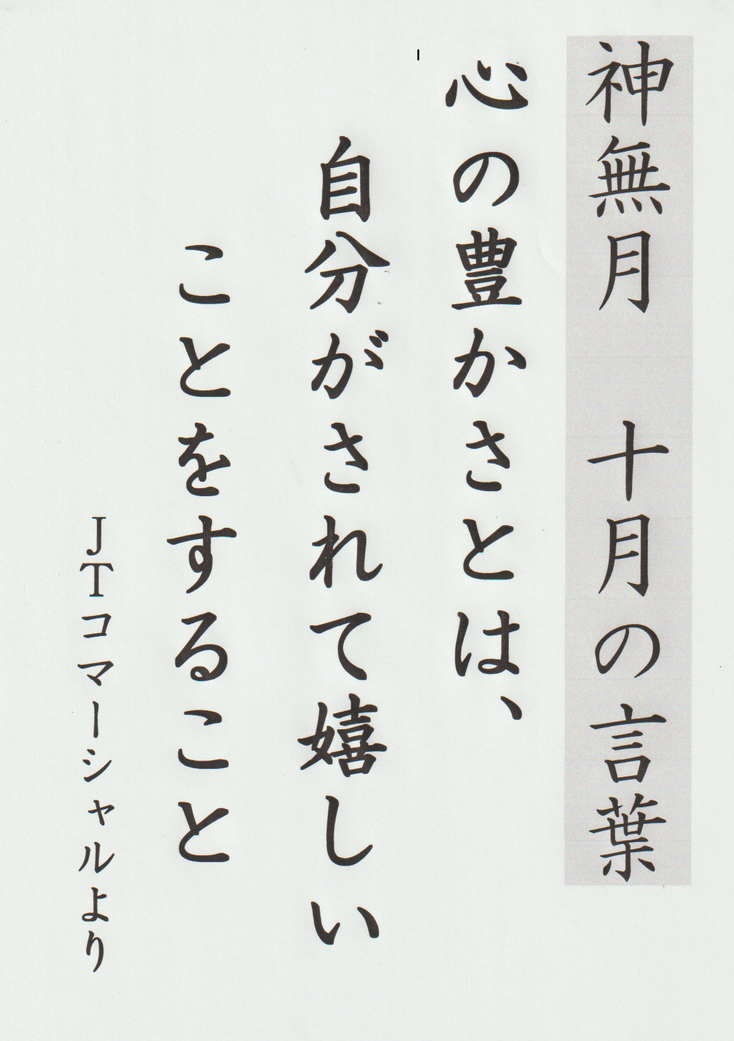 神無月　十月の言葉
心の豊かさとは、
自分がされて嬉しい
ことをすること
JTコマーシャルより